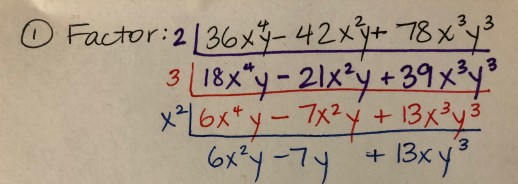 ① Factor: 2 36x⁴y - 42x²y + 78x³y³
3 18x⁴y - 21x²y + 39x³y³
x² 6x⁴y - 7x²y + 13x³y³
6x²y - 7y + 13xy³